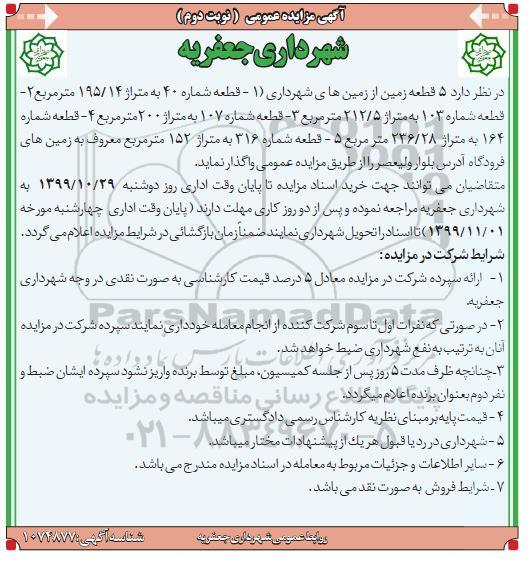 آگهی مزایده عمومی ( نوبت دوم )
شهرداری جعفریه
در نظر دارد ۵ قطعه زمین از زمین ها ی شهرداری (۱- قطعه شماره ۴۰ به متراژ ۱۹۵/۱۴ مترمربع۲-
قطعه شماره ۱۰۳ به متراژ ۲۱۲/۵ مترمربع ۳- قطعه شماره ۱۰۷ به متراژ ۲۰۰مترمربع ۴- قطعه شماره
۱۶۴ به متراژ ۲۳۶/۲۸ متر مربع ۵ - قطعه شماره ۳۱۶ به متراژ ۱۵۲ مترمربع معروف به زمین های
فرودگاه آدرس بلوار ولیعصر را از طریق مزایده عمومی واگذار نماید.
متقاضیان می توانند جهت خرید اسناد مزایده تا پایان وقت اداری روز دوشنبه ۱۳۹۹/۱۰/۲۹ به
شهرداری جعفریه مراجعه نموده و پس از دو روز کاری مهلت دارند ( پایان وقت اداری چهارشنبه مورخه
۱۳۹۹/۱۱/۰۱) تا اسناد را تحویل شهرداری نمایند ضمناً زمان بازگشائی در شرایط مزایده اعلام می گردد.
شرایط شرکت در مزایده:
۱- ارائه سپرده شرکت در مزایده معادل ۵ درصد قیمت کارشناسی به صورت نقدی در وجه شهرداری
جعفریه.
۲- در صورتی که نفرات اول تا سوم شرکت کننده از انجام معامله خودداری نمایند سپرده شرکت در مزایده
آنان به ترتیب به نفع شهرداری ضبط خواهد شد.
۳-چنانچه ظرف مدت ۵ روز پس از جلسه کمیسیون، مبلغ توسط برنده واریز نشود سپرده ایشان ضبط و
نفر دوم بعنوان برنده اعلام میگردد.
۴- قیمت پایه بر مبنای نظریه کارشناس رسمی دادگستری میباشد.
۵- شهرداری در رد یا قبول هر یك از پیشنهادات مختار میباشد.
۶- سایر اطلاعات و جزئیات مربوط به معامله در اسناد مزایده مندرج می باشد.
۷- شرایط فروش به صورت نقد می باشد.
روابط عمومی شهرداری جعفریه
شناسه آگهی: ۱۰۷۴۸۷۷
ParsNamadData
پایگاه اطلاع رسانی مناقصه و مزایده
۰۲۱-۸۸۳۴۹۶۷۰-۵